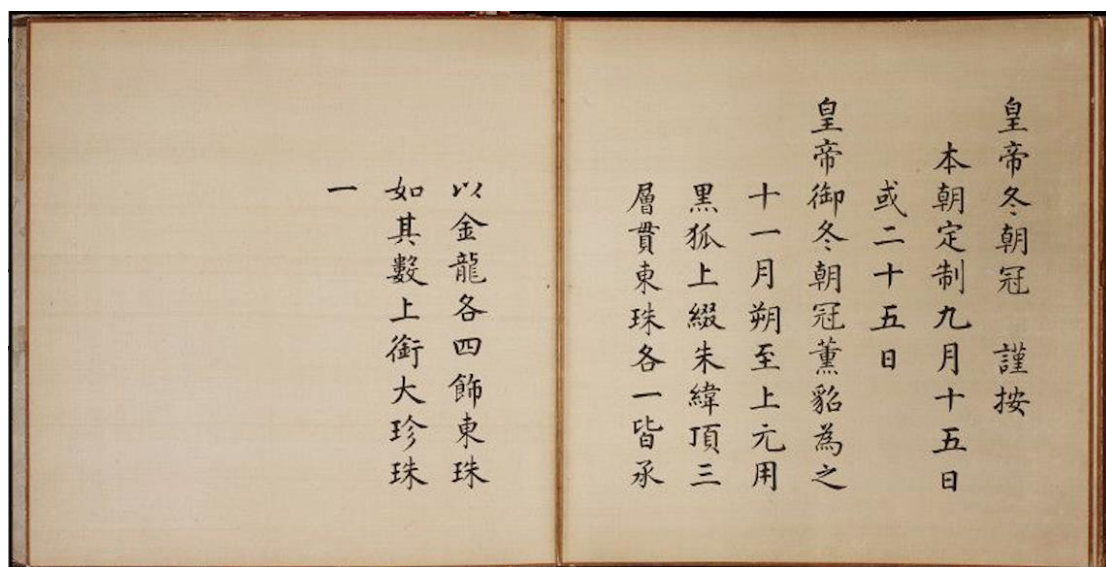 皇帝冬朝冠 謹按
本朝定制九月十五日
或二十五日
皇帝御冬朝冠薰貂為之
十一月朔至上元用
黑狐上綴朱緯頂三
層貫東珠各一皆承
以金龍各四飾東珠
如其數上銜大珍珠
一